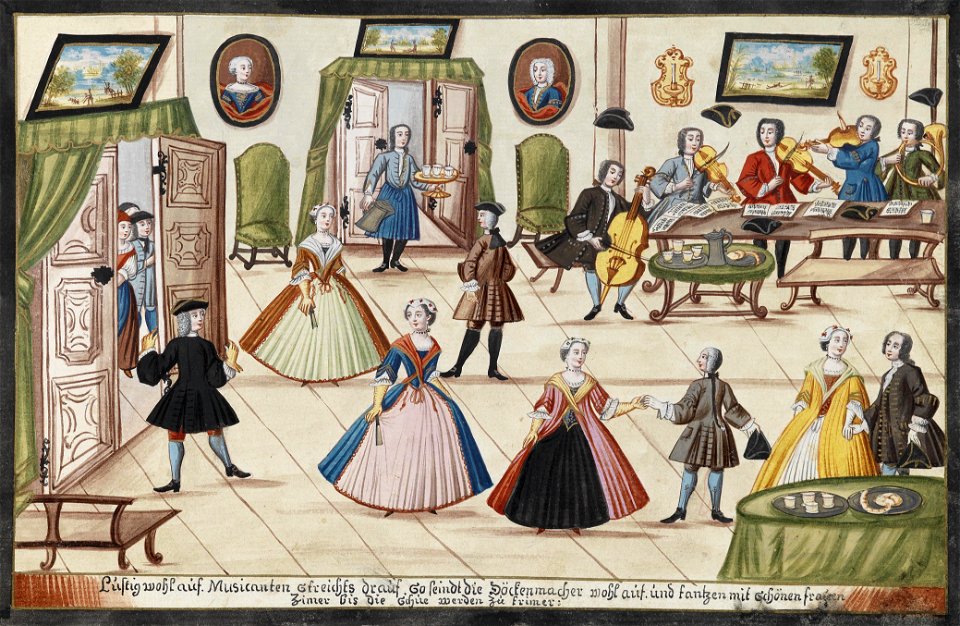 Lustig wohl auf. Musicanten streichts drauf. So seindt die Döckenmacher wohl auf. und tantzen mit schönen frauen
Zimer bis die Schue werden zu trimer: